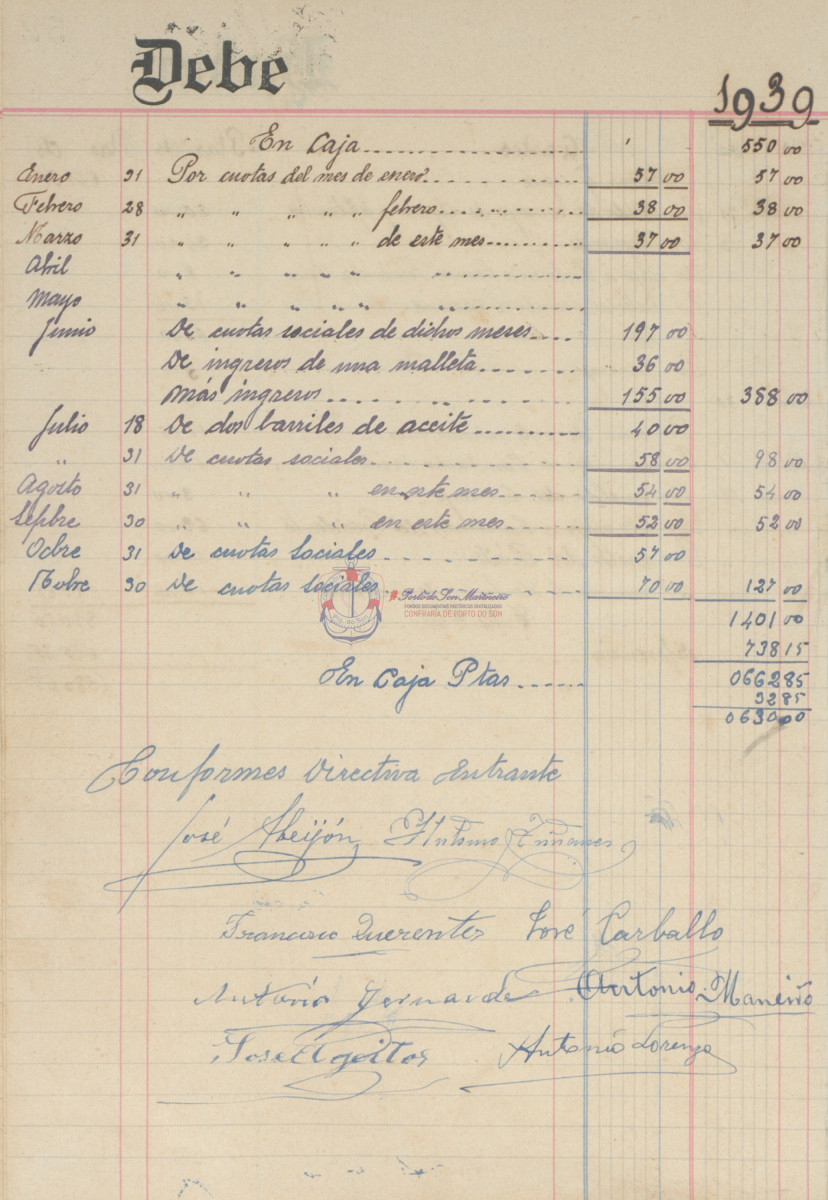 Debe
1939
En Caja 550 00
Enero 31 Por cuotas del mes de enero 57 00 57 00
Febrero 28 " " " " " febrero 38 00 38 00
Marzo 31 " " " " " de este mes 37 00 37 00
Abril " " " " " "
Mayo " " " " " "
Junio De cuotas sociales de dichos meses 197 00
De ingresos de una malleta 36 00
Más ingresos 155 00 388 00
Julio 18 De dos barriles de aceite 40 00
" 31 De cuotas sociales 58 00 98 00
Agosto 31 " " " en este mes 54 00 54 00
Sepbre 30 " " " en este mes 52 00 52 00
Octbre 31 De cuotas Sociales 57 00
Nobre 30 De cuotas sociales 70 00 127 00
Porto do Son Mariñeiro
FONDOS DOCUMENTAIS HISTÓRICOS DIXITALIZADOS
CONFRARÍA DE PORTO DO SON
1401 00
738 15
En Caja Ptas 0662 85
32 85
0630 00
Conformes Directiva Entrante
José Abeijón Antonio
Francisco Querentes José Carballo
Antonio Antonio Maneiro
José Ageitos Antonio Lorenzo